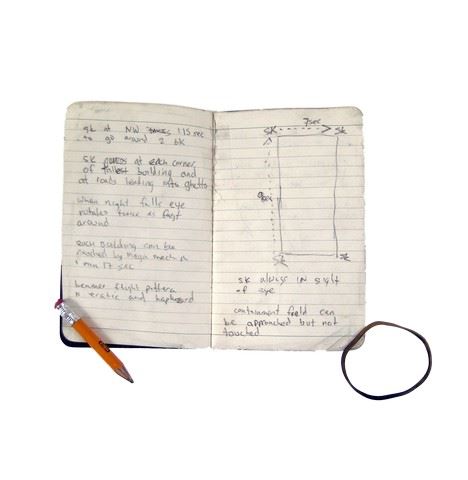 sk at NW takes 115 sec
to go around 2 sk
sk pauses at each corner
of tallest building and
at roads leading into ghetto
when night falls eye
rotates twice as fast
around
each building can be
reached by mega mech in
1 min 17 sec
hammer flight pattern
is eratic and haphazard
7sec
SK sk
sk sk
sk always in sight
of eye
containment field can
be approached but not
touched